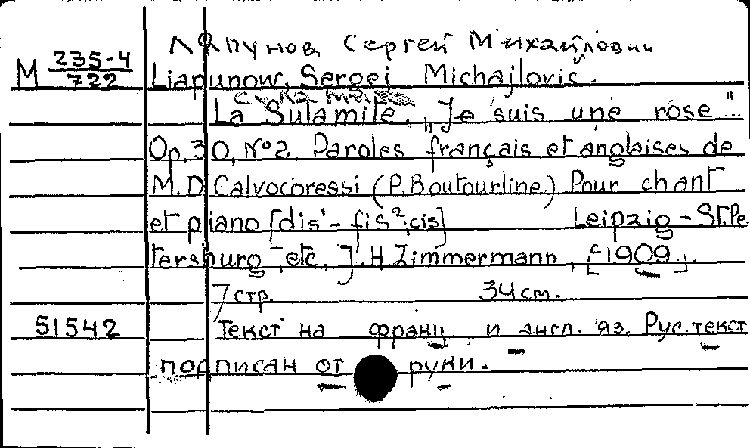 Ляпунов, Сергей Михайлович
М 235-4/722
Liapunow, Sergei Michajlovic.
La Sulamite. „Je suis une rose".
Op. 30, №2. Paroles français et anglaises de
M.D. Calvocoressi (P. Boutourline.) Pour chant
et piano [dis'- fis²; cis] Leipzig - St. Pe
tersburg, etc., J. H. Zimmermann, [1909].
7 стр. 34 см.
51542 Текст на франц. и англ. яз. Рус. текст
подписан от руки.